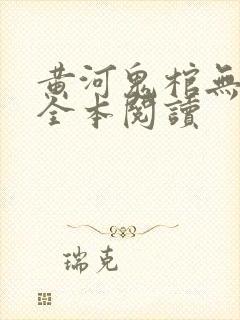 黃河鬼棺無
全本閱讀
瑞克